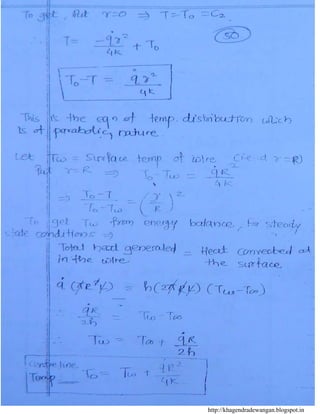 To get, Put r=0 ⇒ T=T₀ =C₂.
50
∴ T= -q̇r²/4K + T₀
T₀-T = q̇r²/4K
This is the eqn of temp. distribution which
is of parabolic nature.
Let Tw = Surface temp of wire (i.e. at r=R)
Put r=R ⇒ T₀-Tw = q̇R²/4K
⇒ T₀-T/T₀-Tw = (r/R)²
To get Tw from energy balance, for steady
state conditions ⇒
Total heat generated = Heat convected at
in the wire the surface.
q̇ (πR²L) = h(2πRL) (Tw-T∞)
∴ q̇R/2h = Tw-T∞
∴ Tw = T∞ + q̇R/2h
Centre line
Temp T₀ = Tw + q̇R²/4K
http://khagendradewangan.blogspot.in